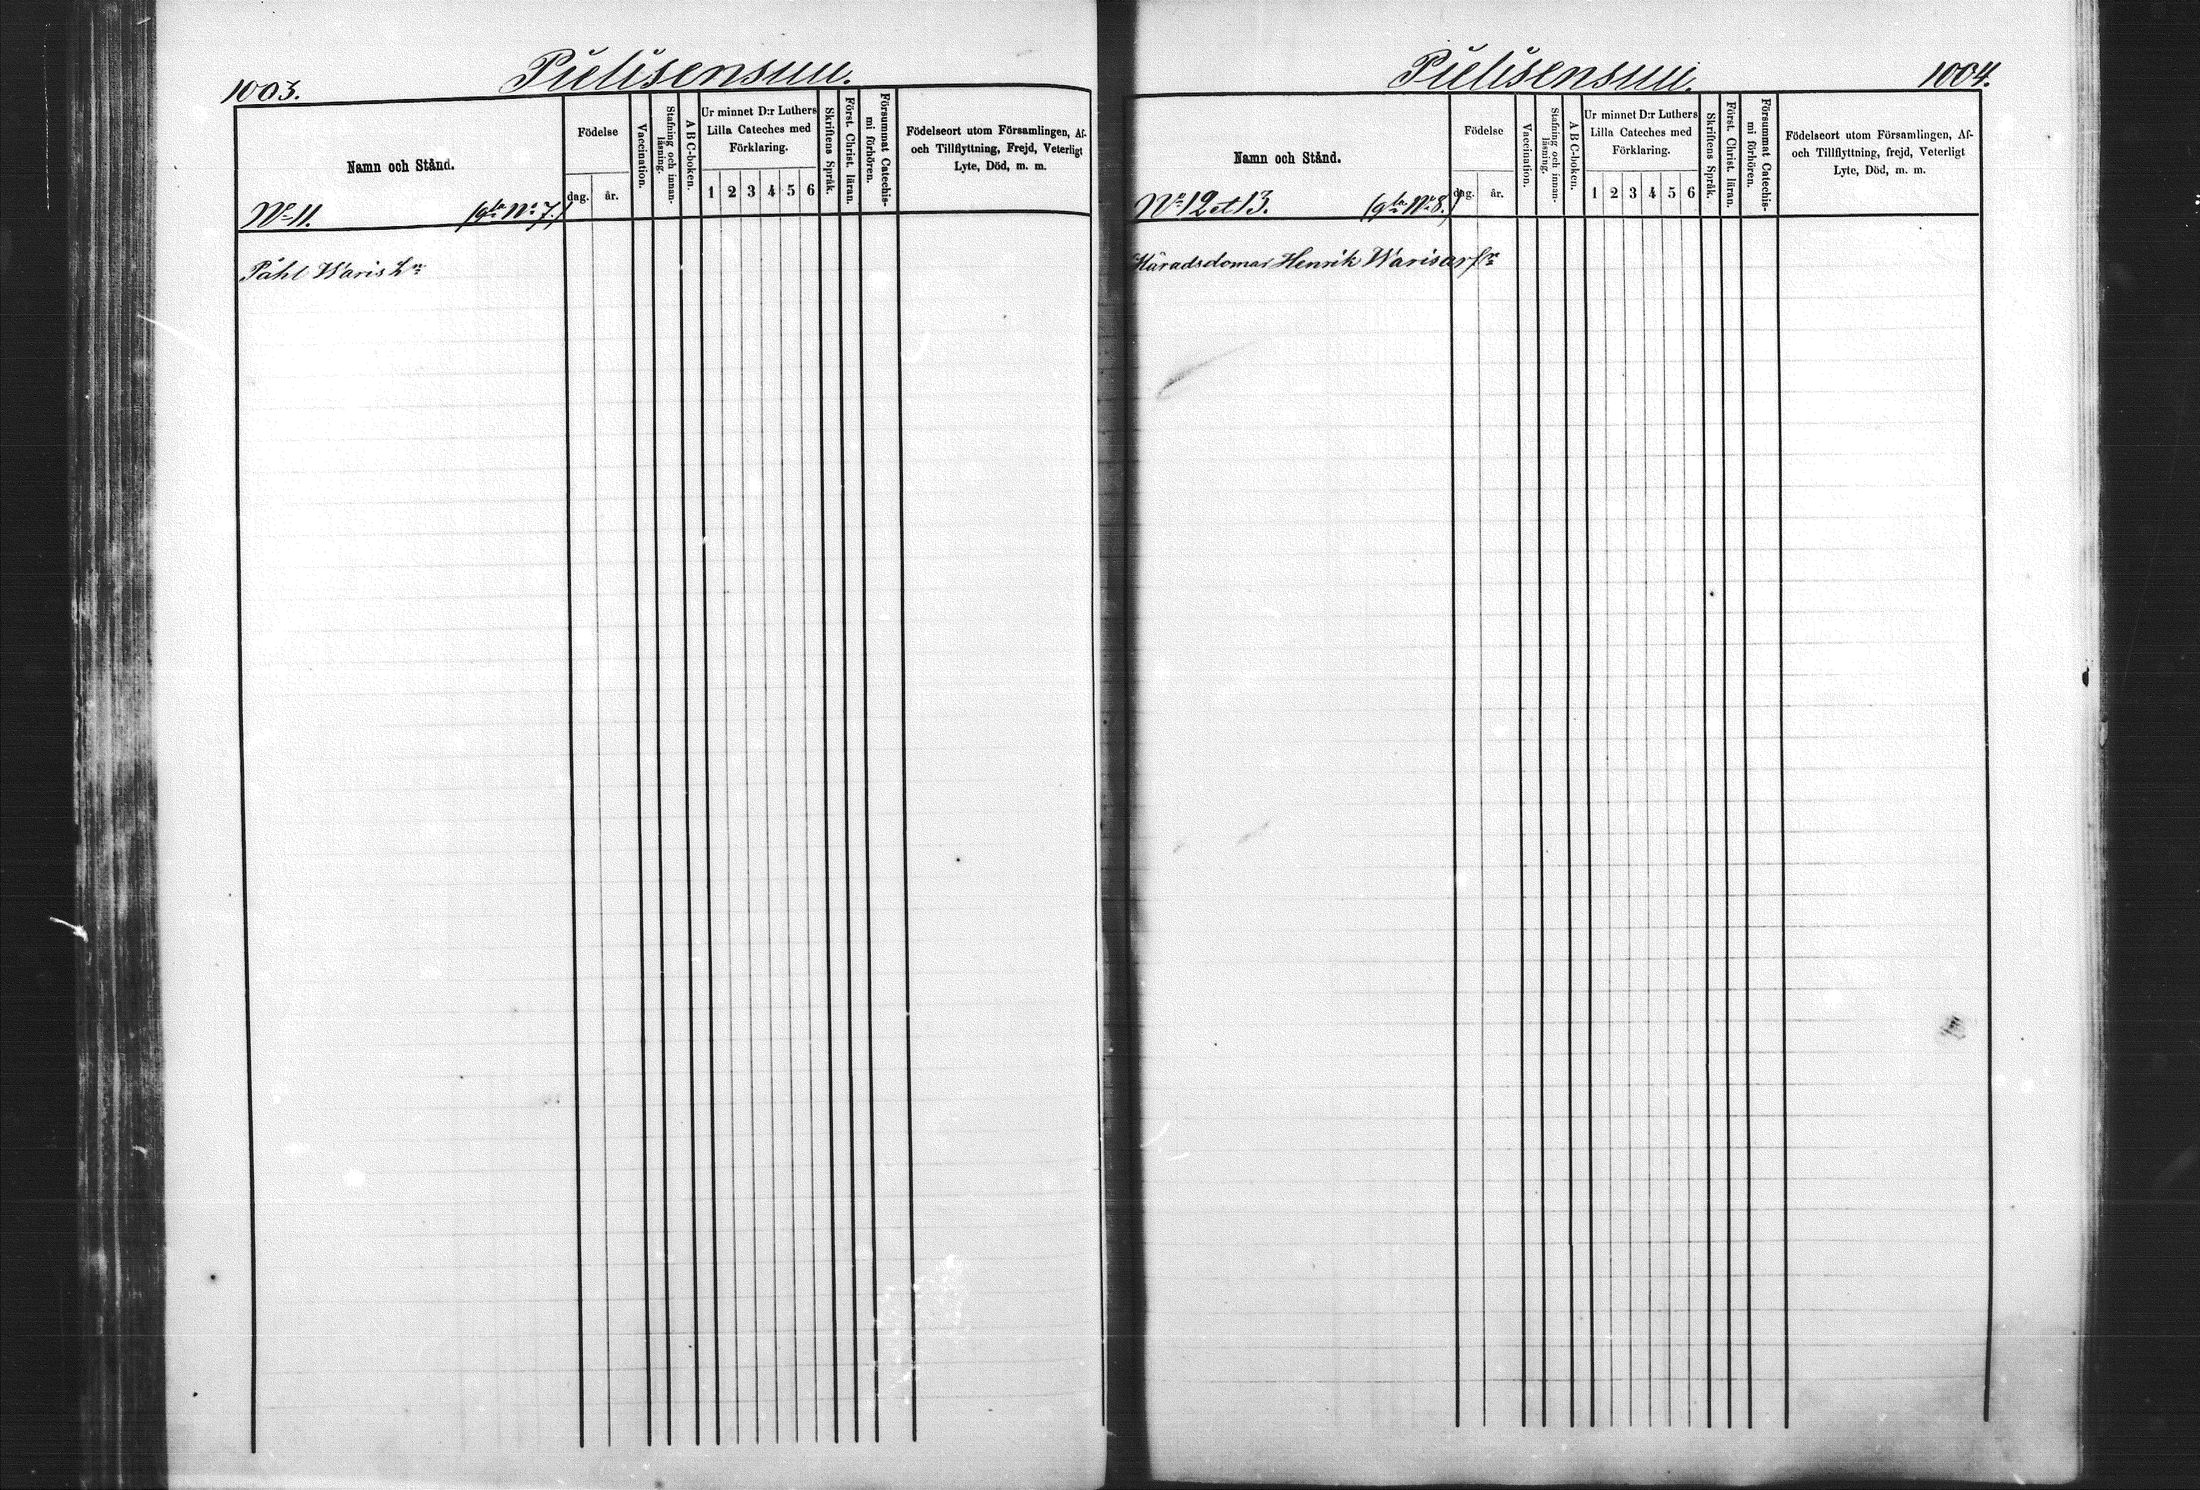 1003.
Pielisensuu.
Namn och Stånd.
Födelse
dag.
år.
Vaccination.
Stafning och innan-
läsning.
A B C-boken.
Ur minnet D:r Luthers
Lilla Cateches med
Förklaring.
1 2 3 4 5 6
Skriftens Språk.
Först. Christ. läran.
Försummat Catechis-
mi förhören.
Födelseort utom Församlingen, Af-
och Tillflyttning, Frejd, Veterligt
Lyte, Död, m. m.
No 11. (gla No 7.)
Påhl Waris
Pielisensuu.
1004.
Namn och Stånd.
Födelse
dag.
år.
Vaccination.
Stafning och innan-
läsning.
A B C-boken.
Ur minnet D:r Luthers
Lilla Cateches med
Förklaring.
1 2 3 4 5 6
Skriftens Språk.
Först. Christ. läran.
Försummat Catechis-
mi förhören.
Födelseort utom Församlingen, Af-
och Tillflyttning, frejd, Veterligt
Lyte, Död, m. m.
No 12 et 13. (gla No 8.)
Häradsdomar Henrik Waris arfr